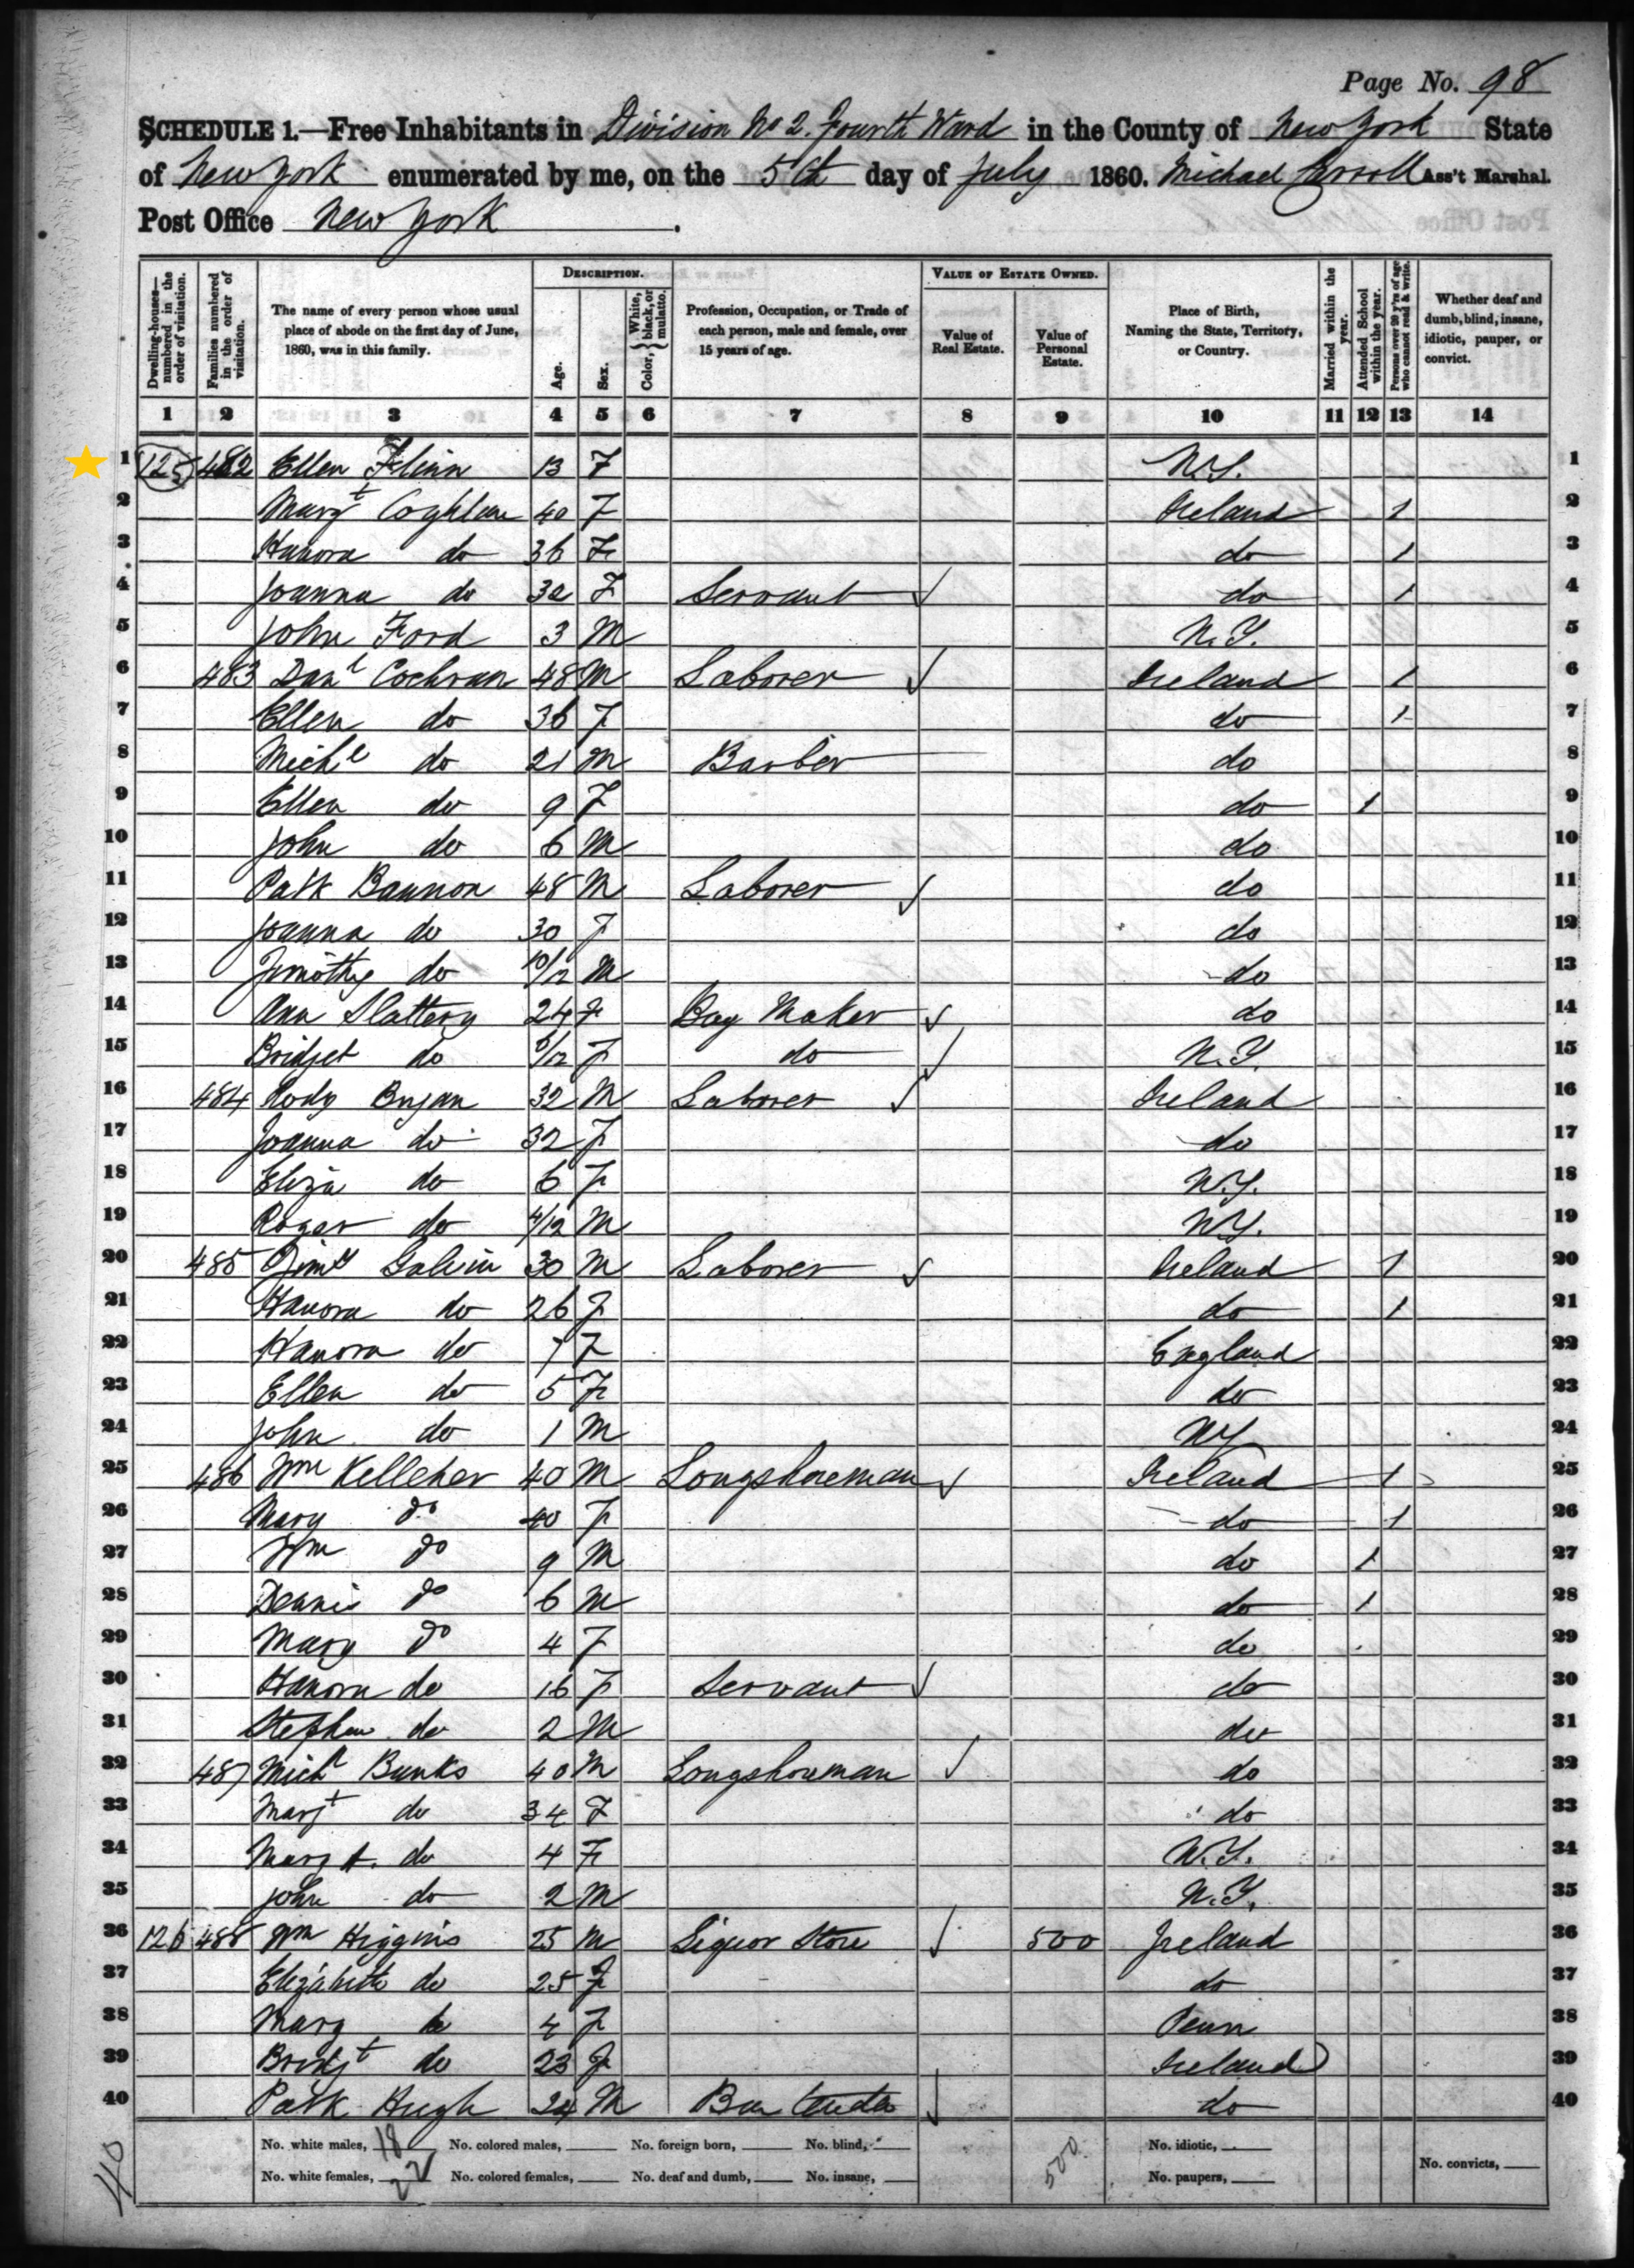 Page No. 98
SCHEDULE 1.—Free Inhabitants in Division No 2. Fourth Ward in the County of New York State
of New York enumerated by me, on the 5th day of July 1860. Michael Carroll Ass't Marshal.
Post Office New York.
Dwelling-houses—numbered in the order of visitation.
Families numbered in the order of visitation.
The name of every person whose usual place of abode on the first day of June, 1860, was in this family.
DESCRIPTION.
Age.
Sex.
Color, White, black, or mulatto.
Profession, Occupation, or Trade of each person, male and female, over 15 years of age.
VALUE OF ESTATE OWNED.
Value of Real Estate.
Value of Personal Estate.
Place of Birth, Naming the State, Territory, or Country.
Married within the year.
Attended School within the year.
Persons over 20 y'rs of age who cannot read & write.
Whether deaf and dumb, blind, insane, idiotic, pauper, or convict.
1 2 3 4 5 6 7 8 9 10 11 12 13 14
1 125 482 Ellen Flinn 13 F N.Y. 1
2 Margt Coghlan 40 F Ireland 1 2
3 Hanora do 36 F do 1 3
4 Joanna do 32 F Servant do 1 4
5 John Ford 3 M N.Y. 5
6 483 Danl Cochran 48 M Laborer Ireland 1 6
7 Ellen do 36 F do 1 7
8 Michl do 21 M Barber do 8
9 Ellen do 9 F do 1 9
10 John do 6 M do 10
11 Patk Bannon 48 M Laborer do 11
12 Joanna do 30 F do 12
13 Timothy do 10/12 M do 13
14 Ann Slattery 24 F Bag Maker do 14
15 Bridget do /12 F do N.Y. 15
16 484 Rody 32 M Laborer Ireland 16
17 Joanna do 32 F do 17
18 Eliza do 6 F N.Y. 18
19 Roger do 4/12 M N.Y. 19
20 485 Timy Galvin 30 M Laborer Ireland 1 20
21 Hanora do 26 F do 1 21
22 Hanora do 7 F England 22
23 Ellen do 5 F do 23
24 John do 1 M NY 24
25 486 Wm Kelleher 40 M Longshoreman Ireland 1 25
26 Mary do 40 F do 1 26
27 Wm do 9 M do 1 27
28 Dennis do 6 M do 1 28
29 Mary do 4 F do 29
30 Hanora do 16 F Servant do 30
31 Stephen do 2 M do 31
32 487 Michl Bunks 40 M Longshoreman do 32
33 Margt do 34 F do 33
34 Margt. do 4 F N.Y. 34
35 John do 2 M N.Y. 35
36 126 488 Wm Higgins 25 M Liquor Store 500 Ireland 36
37 Elizabeth do 25 F do 37
38 Mary do 4 F Penn 38
39 Bridgt do 23 F Ireland 39
40 Patk Hugh 24 M Bar tender do 40
No. white males, 18 No. colored males, No. foreign born, No. blind, No. idiotic,
No. white females, 22 No. colored females, No. deaf and dumb, No. insane, 500 No. paupers, No. convicts,
40